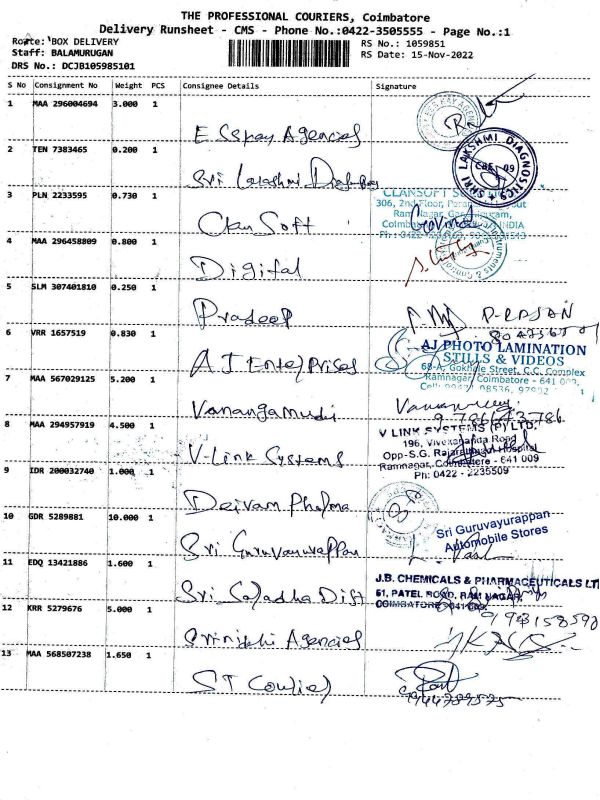 THE PROFESSIONAL COURIERS, Coimbatore
Delivery Runsheet - CMS - Phone No.:0422-3505555 - Page No.:1
Route: BOX DELIVERY
RS No.: 1059851
Staff: BALAMURUGAN
RS Date: 15-Nov-2022
DRS No.: DCJB105985101
S No Consignment No Weight PCS Consignee Details Signature
1 MAA 296004694 3.000 1
E SSpay Agencies
2 TEN 7383465 0.200 1
Sri
SHRI LAKSHMI DIAGNOSTICS
CBE 09
3 PLN 2233595 0.730 1
Clan Soft
CLANSOFT
306, 2nd Floor,
Ramnagar,
INDIA
4 MAA 296458809 0.800 1
Digital
5 SLM 307401810 0.250 1
Pradeep
P-RAJAN
6 VRR 1657519 0.830 1
AJ Enterprises
AJ PHOTO LAMINATION
STILLS & VIDEOS
68-A, Gokhale Street, C.C. Complex
Ramnagar, Coimbatore - 641 009,
7 MAA 567029125 5.200 1
Vanangamudi
8 MAA 294957919 4.500 1
V-Link Systems
V LINK SYSTEMS (P) LTD.
196, Vivekananda Road
Opp-S.G. Hospital
Ramnagar, Coimbatore - 641 009
Ph: 0422 - 2235509
9 IDR 200032740 1.000 1
Deivam Pharma
10 GDR 5289881 10.000 1
Sri Guruvayurappan
Sri Guruvayurappan
Automobile Stores
11 EDQ 13421886 1.600 1
Sri Dist
J.B. CHEMICALS & PHARMACEUTICALS LT
51, PATEL ROAD, RAM NAGAR,
COIMBATORE - 641 009.
12 KRR 5279676 5.000 1
Agencies
13 MAA 568507238 1.650 1
ST Courier